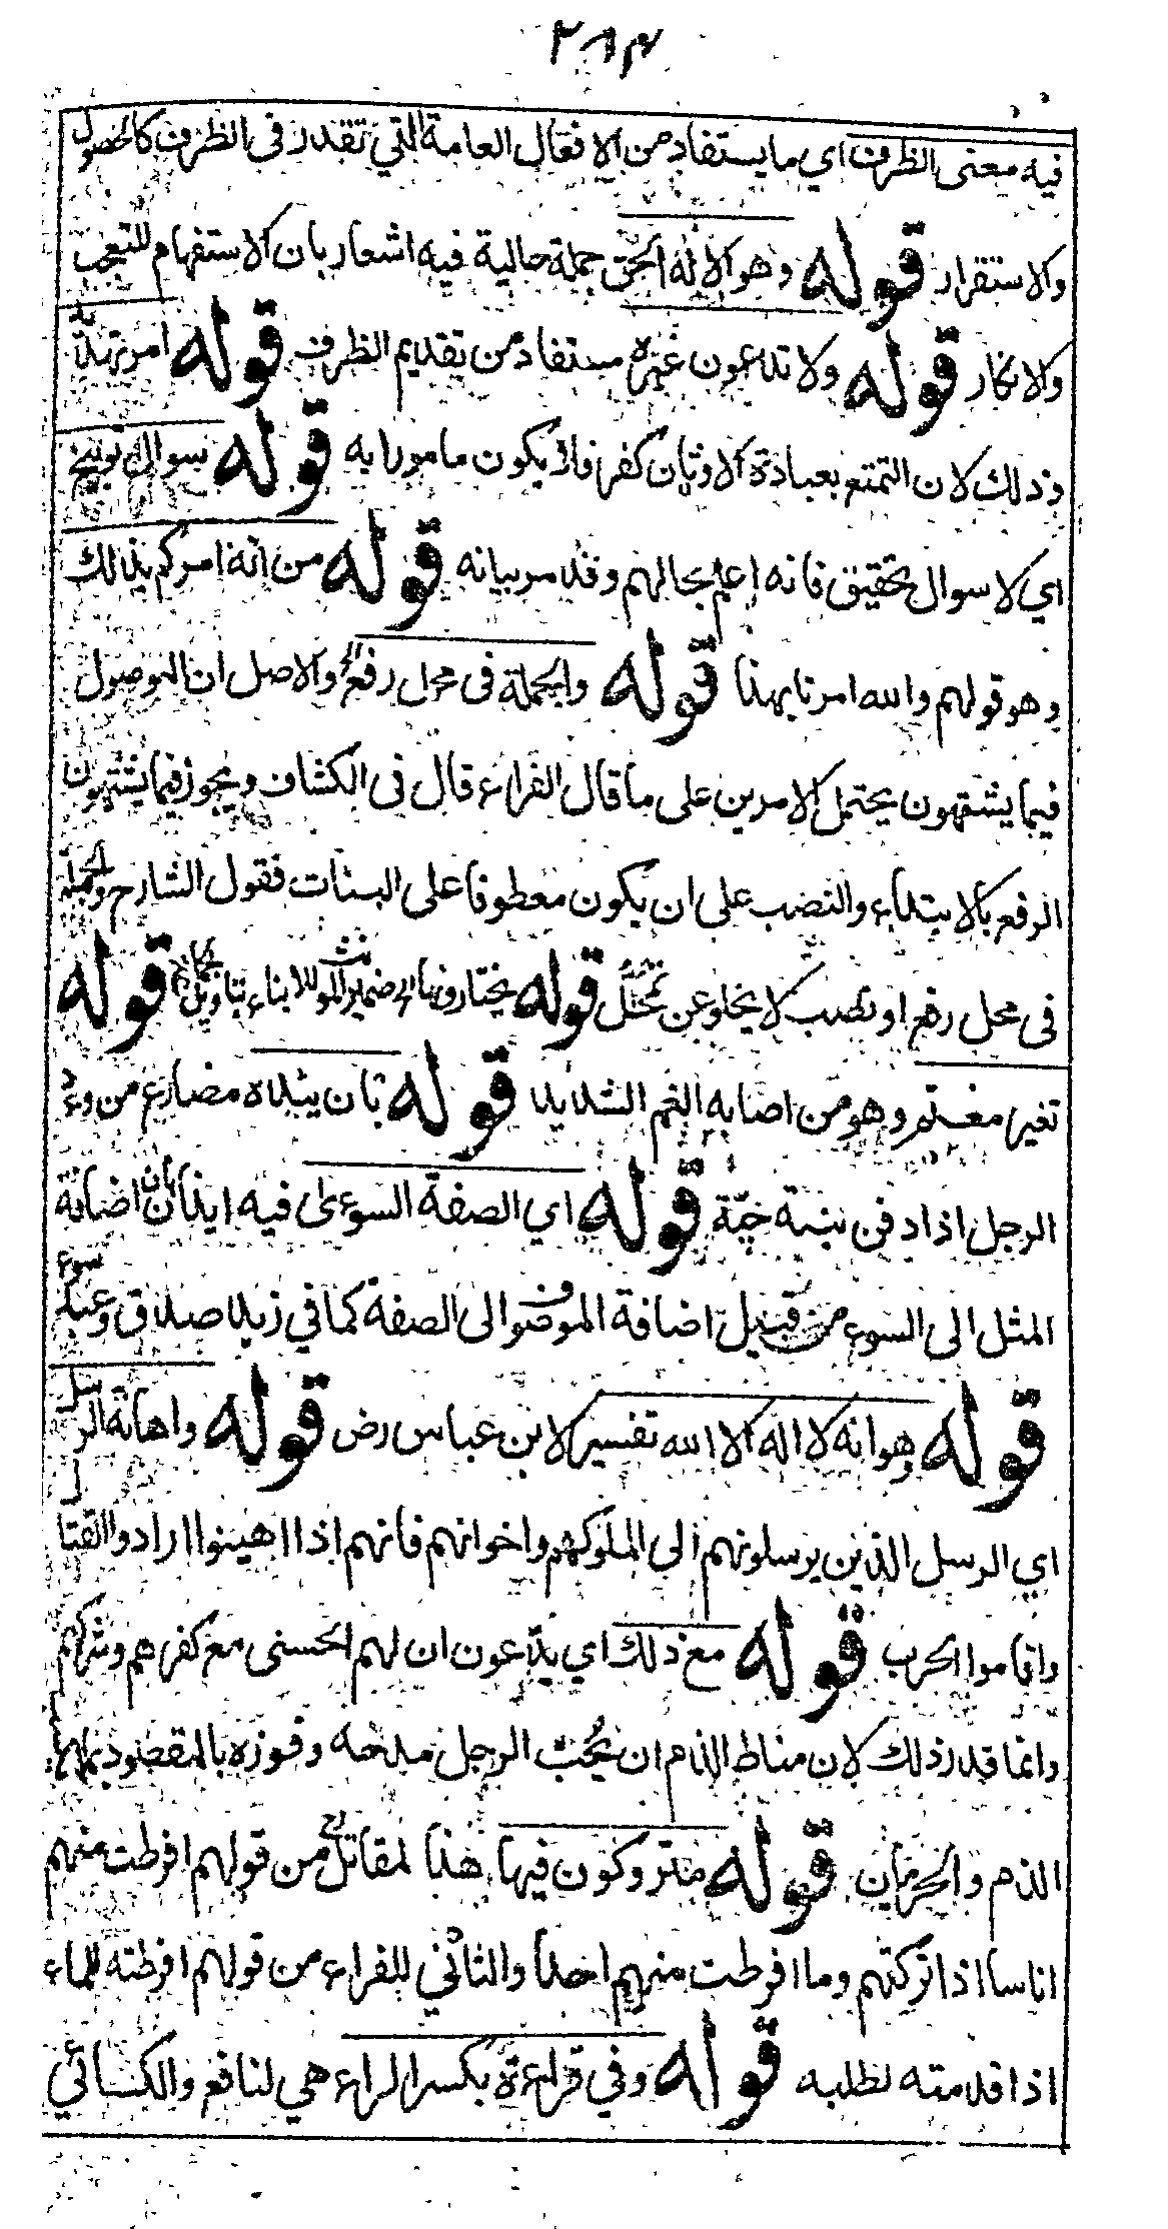 فيه معنى الظرف اي ما يستفاد من الافعال العامة التي تقدر في الظرف كالحصول
والاستقرار قوله وهو الاله الحق جملة حالية فيه اشعار بان الاستفهام للتعجب
والانكار قوله ولا تدعون غيره مستفاد من تقديم الظرف قوله امر تهديد
وذلك لان التمتع بعبادة الاوثان كفر فلا يكون مامورا به قوله سوال توبيخ
اي لا سوال تحقيق فانه اعلم بحالهم وقد مر بيانه قوله من انه امركم بذلك
وهو قولهم والله امرنا بهذا قوله والجملة في محل رفع الخ والاصل ان الموصول
فيما يشتهون يحتمل الامرين على ما قال الفراء قال في الكشاف ويجوز فيما يشتهون
الرفع بالابتداء والنصب على ان يكون معطوفا على البنات فقول الشارح والجملة
في محل رفع او نصب لا يخلو عن تمحل قوله يختارونها الى ضمير المونث للابناء بتاويل قوله
تغير مغتم وهو من اصابه الغم الشديد قوله بان يئده مضارع من وءد
الرجل اذا دفن بنته حية قوله اي الصفة السوءى فيه ايذان بان اضافة
المثل الى السوء من قبيل اضافة الموصوف الى الصفة كما في زيد صدق وعبد سوء
قوله وهو انه لا اله الا الله تفسير لابن عباس رض قوله واهانة الرسل
اي الرسل الذين يرسلونهم الى الملوكهم واخوانهم فانهم اذا اهينوا ارادوا القتال
واقاموا الحرب قوله مع ذلك اي يدّعون ان لهم الحسنى مع كفرهم وشركهم
وانما قدر ذلك لان مناط الذم ان يحُب الرجل مدحه وفوزه بالمقصود
الذم والحرمان قوله متروكون فيها هذا لمقاتل من قولهم افرطت منهم
اناسا اذا تركتهم وما افرطت منهم احدا والثاني للفراء من قولهم افرطته للماء
اذا قدمته لطلبه قوله وفي قراءة بكسر الراء هي لنافع والكسائي